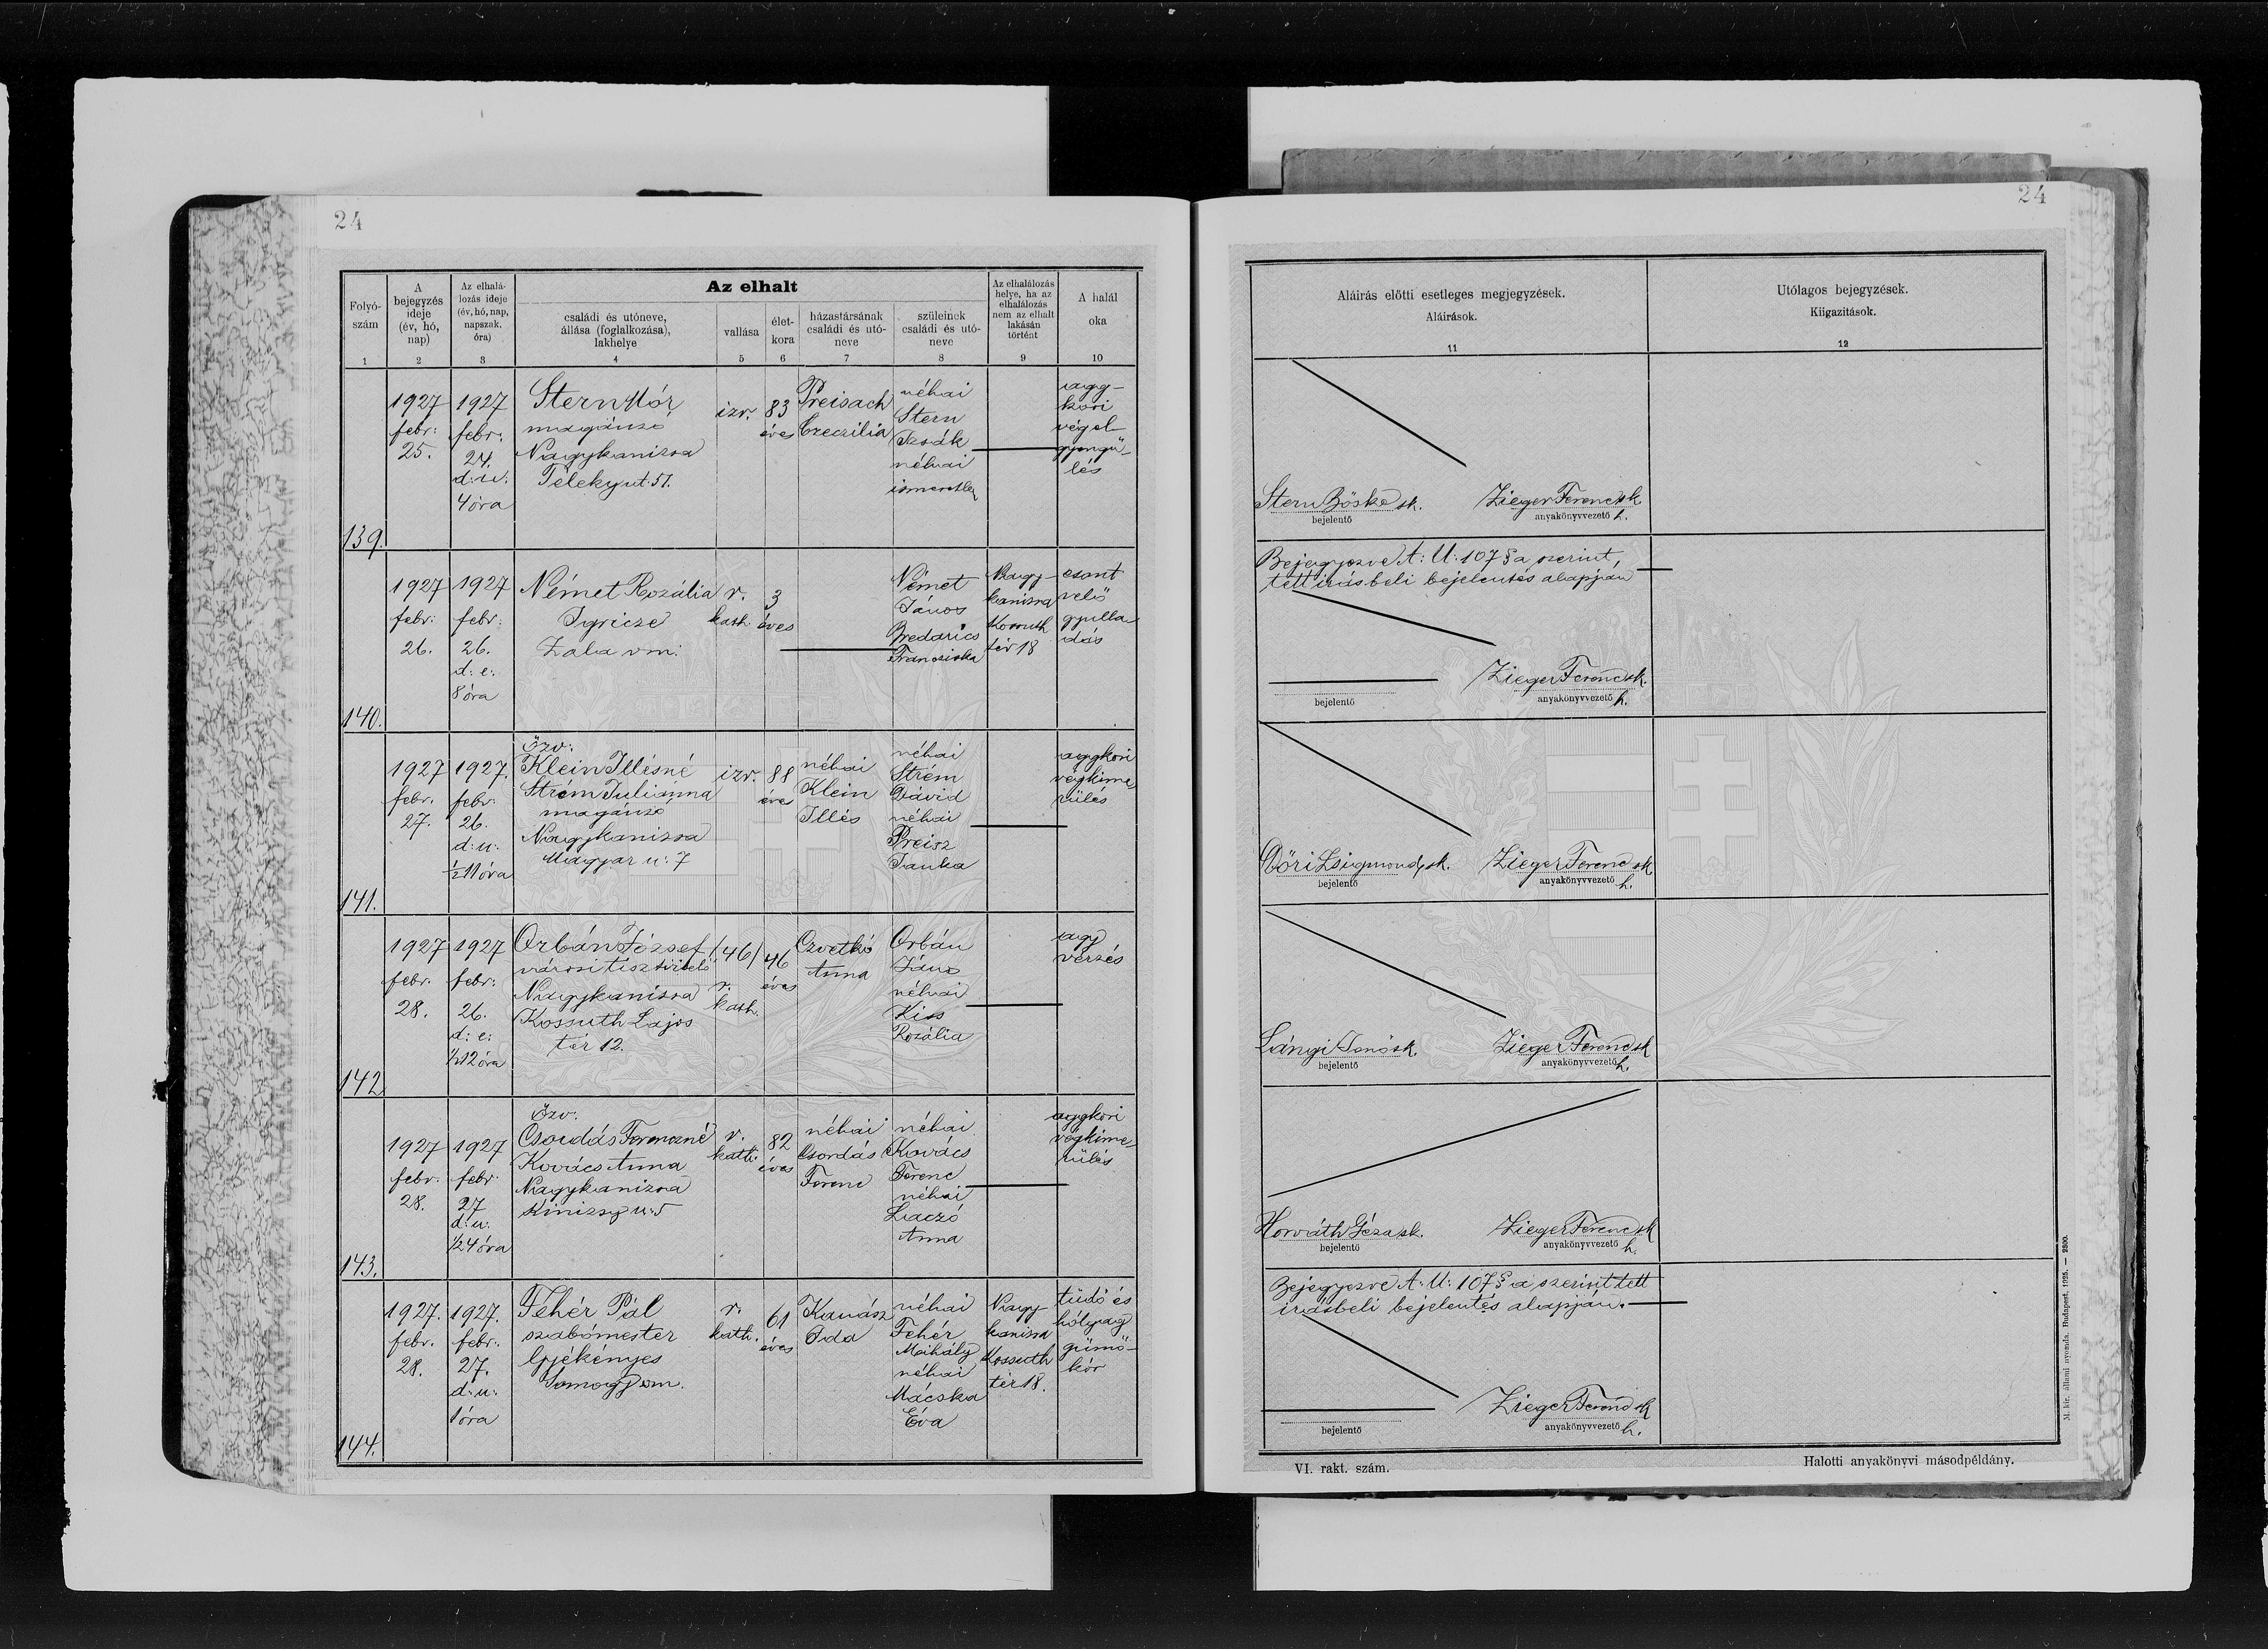 24
Folyó-
szám
1
A
bejegyzés
ideje
(év, hó,
nap)
2
Az elhalá-
lozás ideje
(év, hó, nap,
napszak,
óra)
3
Az elhalt
családi és utóneve,
állása (foglalkozása),
lakhelye
4
vallása
5
élet-
kora
6
házastársának
családi és utó-
neve
7
szüleinek
családi és utó-
neve
8
Az elhalálozás
helye, ha az
elhalálozás
nem az elhalt
lakásán
történt
9
A halál
oka
10
139.
1927
febr:
25.
1927
febr:
24.
d: u:
4 óra
Stern Mór
magánzó
Nagykanizsa
Teleky ut: 51.
izr.
83
éves
Preisach
Czeczilia
néhai
Stern
Izsák
néhai
ismeretlen
agg-
kori
végel-
gyengü-
lés
140.
1927
febr:
26.
1927
febr:
26.
d: e:
8 óra
Német Rozália
Igricze
Zala vm:
r.
kath.
3
éves
Német
János
Bredarics
Francziska
Nagy-
kanizsa
Kossuth
tér 18
csont
velő
gyulla-
dás
141.
1927
febr.
27.
1927.
febr:
26.
d: u:
1/2 11 óra
özv:
Klein Illésné
Strém Julianna
magánzó
Nagykanizsa
Magyar u: 7
izr.
88
éves
néhai
Klein
Illés
néhai
Strém
Dávid
néhai
Preisz
Hanka
aggkori
végkime-
rülés
142
1927
febr.
28.
1927
febr:
26.
d: e:
1/2 12 óra
Orbán József
városi tisztviselő
Nagykanizsa
Kossuth Lajos
tér 12.
/46/
r.
kath.
46
éves
Czvetkó
Anna
Orbán
János
néhai
Kiss
Rozália
agy
vérzés
143.
1927
febr.
28.
1927
febr.
27
d: u:
1/2 4 óra
özv:
Csordás Ferenczné
Kovács Anna
Nagykanizsa
Kinizsy u: 5
r.
kath:
82
éves
néhai
Csordás
Ferenc
néhai
Kovács
Ferenc
néhai
Laczó
Anna
aggkori
végkime-
rülés
144.
1927.
febr.
28.
1927.
febr:
27.
d: u:
1 óra
Fehér Pál
szabómester
Gyékényes
Somogy vm.
r.
kath.
61
éves
Kanász
Ida
néhai
Fehér
Mihály
néhai
Mácska
Éva
Nagy-
kanizsa
Kossuth
tér 18.
tüdő és
hólyag
gümő-
kór
24
Aláirás előtti esetleges megjegyzések.
Aláirások.
11
Utólagos bejegyzések.
Kiigazitások.
12
Stern Böske sk.
bejelentő
Zieger Ferenc sk
anyakönyvvezető h.
Bejegyezve A: U: 107 § a szerint
tett irásbeli bejelentés alapján
bejelentő
Zieger Ferenc sk.
anyakönyvvezető h.
Dőri Zsigmond sk.
bejelentő
Zieger Ferenc sk
anyakönyvvezető h.
Lángi Jenő sk.
bejelentő
Zieger Ferenc sk
anyakönyvvezető h.
Horváth Géza sk.
bejelentő
Zieger Ferenc sk
anyakönyvvezető h.
Bejegyezve A: U: 107 § a szerint tett
irásbeli bejelentés alapján.
bejelentő
Zieger Ferenc sk
anyakönyvvezető h.
VI. rakt. szám.
Halotti anyakönyvi másodpéldány.
M. kir. állami nyomda. Budapest, 1925. — 2300.